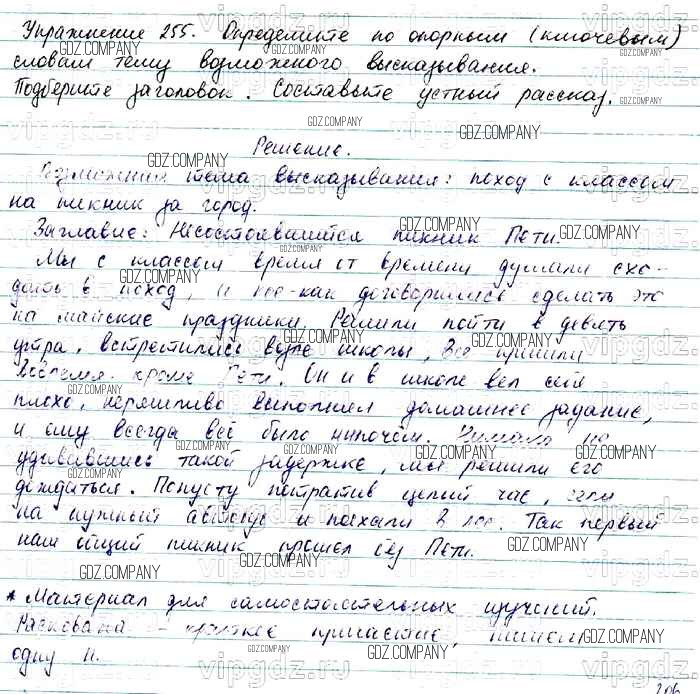 Упражнение 255. Определите по опорным (ключевым)
словам тему возможного высказывания.
Подберите заголовок. Составьте устный рассказ.
Решение.
Возможная тема высказывания: поход с классом
на пикник за город.
Заглавие: Несостоявшийся пикник Пети.
Мы с классом время от времени думали схо-
дить в поход, и кое-как договорились сделать это
на майские праздники. Решили пойти в девять
утра, встретились возле школы. Все пришли
вовремя кроме Пети. Он и в школе вел себя
плохо, неряшливо выполнял домашнее задание,
и ему всегда всё было нипочём. Нимало не
удивившись такой задержке, мы решили его
дождаться. Попусту потратив целый час, сели
на нужный автобус и поехали в лес. Так первый
наш общий пикник прошел без Пети.
* Материал для самостоятельных изучений.
- краткое причастие, пишем
одну н.
GDZ.COMPANY
vipgdz.ru